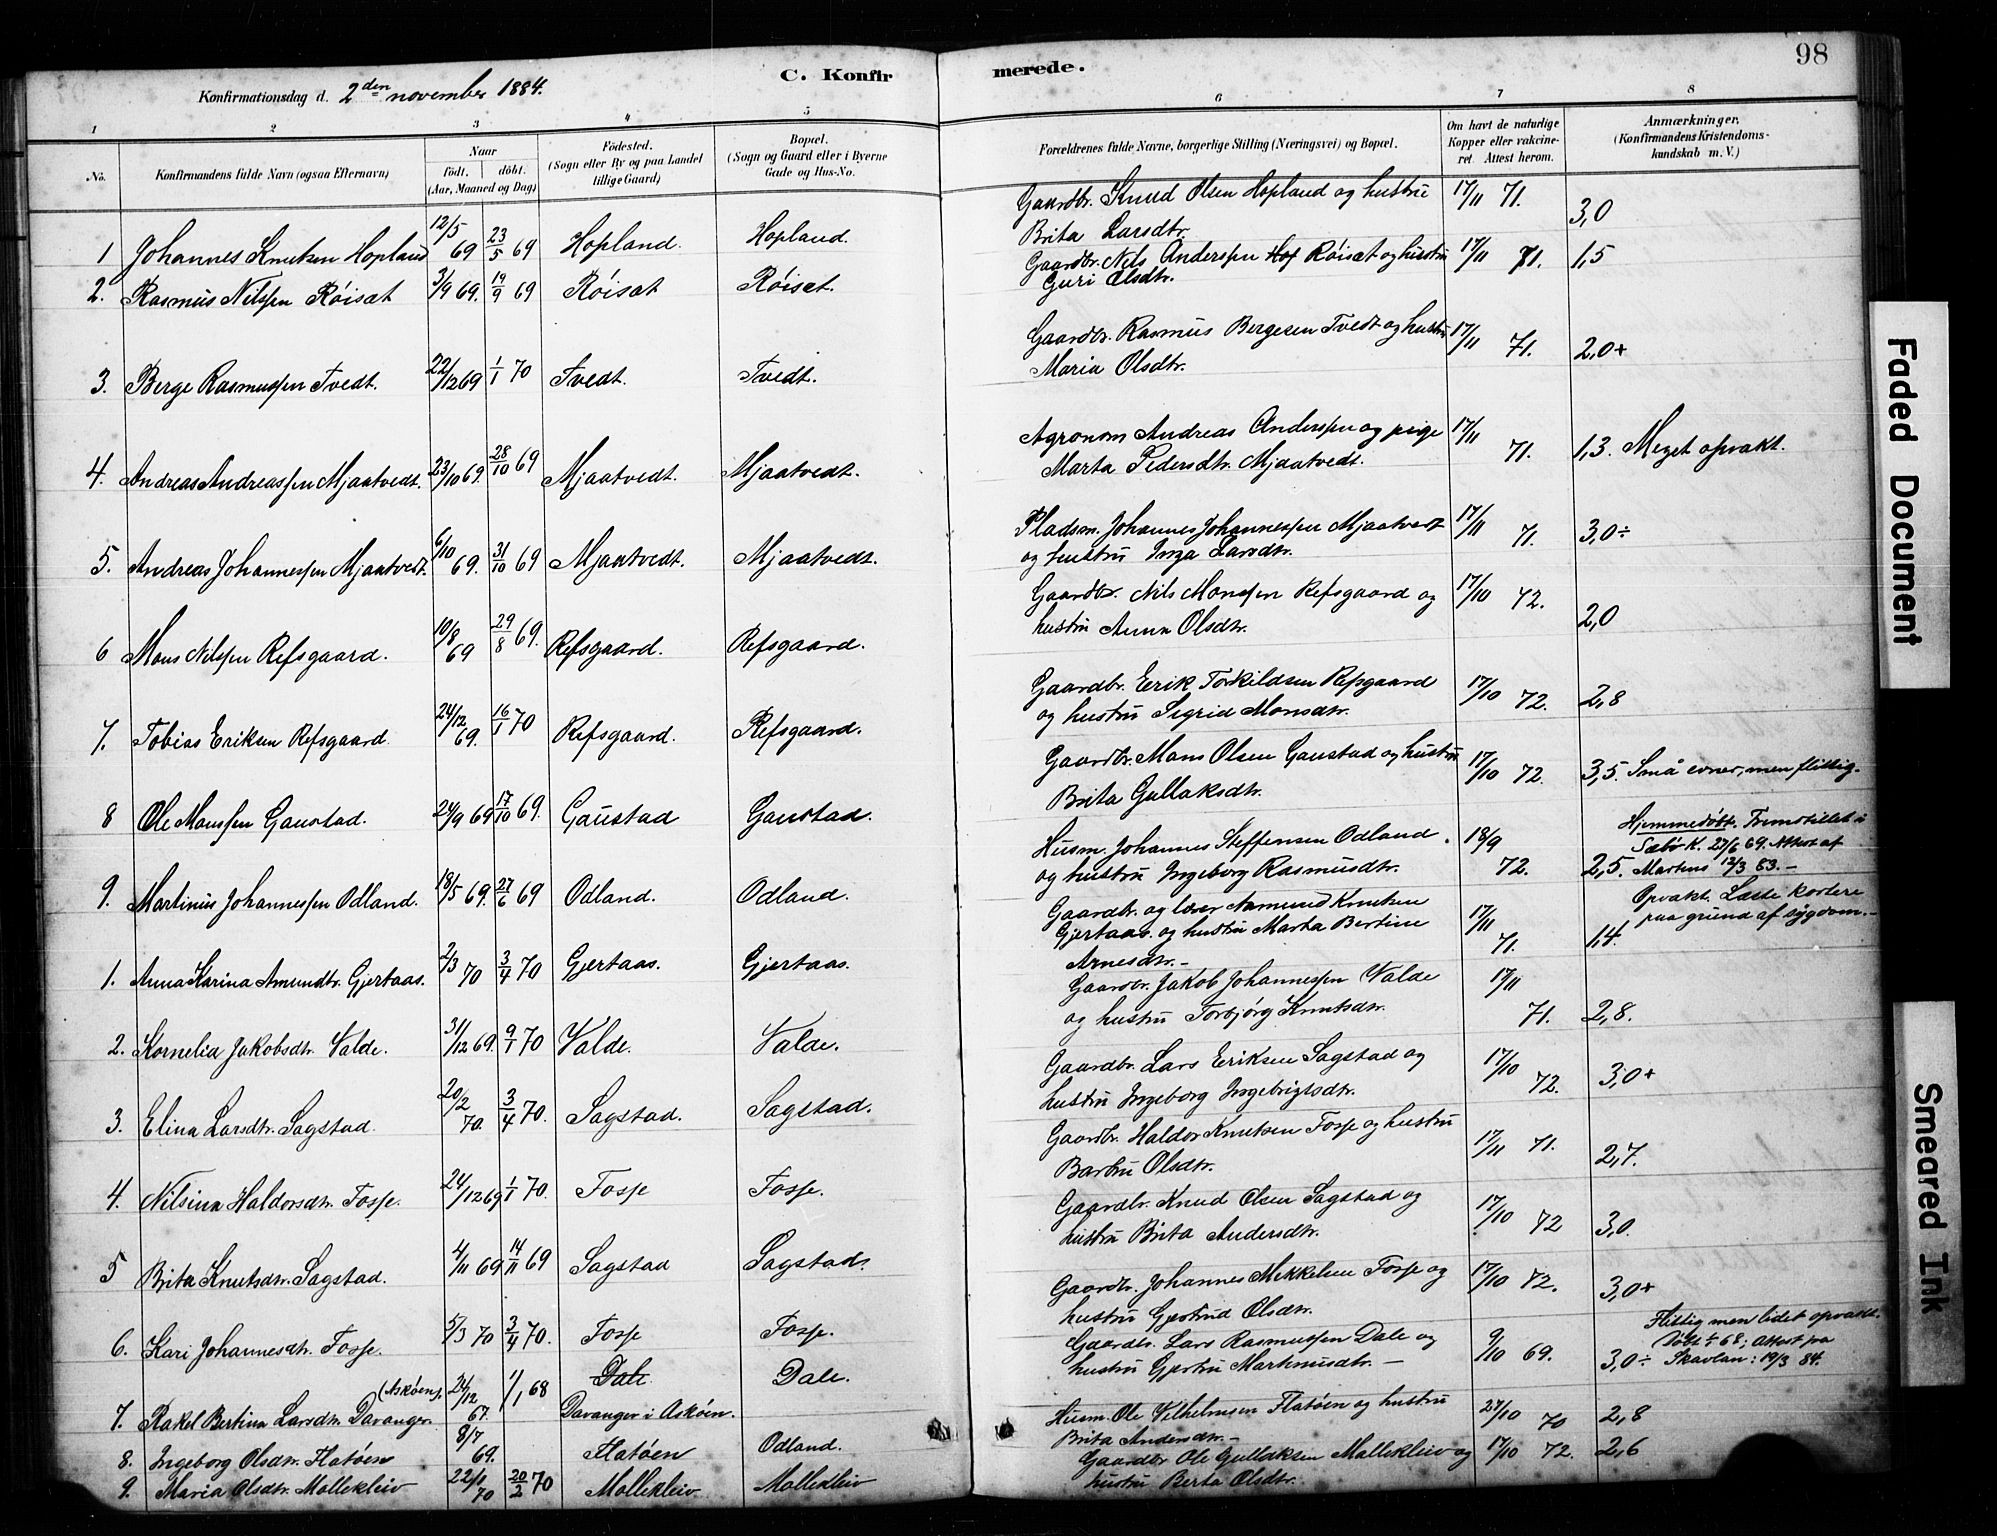 98
C. Konfirmerede.
Konfirmationsdag d. 2den november 1884.
1 2 3 4 5 6 7 8
No. Konfirmandens fulde Navn (ogsaa Efternavn) Naar født. døbt. (Aar, Maaned og Dag) Fødested. (Sogn eller By og paa Landet tillige Gaard) Bopæl. (Sogn og Gaard eller i Byerne Gade og Hus-No. Forældrenes fulde Navne, borgerlige Stilling (Næringsvei) og Bopæl. Om havt de naturlige Kopper eller vakcineret. Attest herom. Anmærkninger. (Konfirmandens Kristendomskundskab m. V.)
1 Johannes Knutsen Hopland 12/5 69 23/5 69 Hopland. Hopland. Gaardbr. Knud Olsen Hopland og hustru Brita Larsdtr. 17/11 71. 3,0
2. Rasmus Nilssen Røiset 3/9 69. 19/9 69 Røiset Røiset. Gaardbr. Nils Anderssen Røiset og hustru Guri Olsdtr. 17/11 71. 1,5
3. Berge Rasmussen Tvedt. 22/12 69 1/1 70 Tvedt. Tvedt. Gaardbr. Rasmus Bergesen Tvedt og hustru Maria Olsdtr. 17/11 71. 2,0+
4. Andreas Andreassen Mjaatvedt. 23/10 69. 28/10 69 Mjaatvedt. Mjaatvedt. Agronom Andreas Anderssen og pige Marta Pedersdtr. Mjaatvedt. 17/11 71. 1,3. Meget opvakt.
5. Andreas Johannessen Mjaatvedt. 6/10 69. 31/10 69 Mjaatvedt. Mjaatvedt. Pladsm. Johannes Johannessen Mjaatvedt og hustru Inga Larsdtr. 17/11 71. 3,0÷
6 Mons Nilssen Refsgaard. 10/8 69 29/8 69. Refsgaard. Refsgaard. Gaardbr. Nils Monssen Refsgaard og hustru Anna Olsdtr. 17/10 72. 2,0
7. Tobias Eriksen Refsgaard. 24/12 69. 16/1 70 Refsgaard. Refsgaard. Gaardbr. Erik Torkildsen Refsgaard og hustru Sigrid Monsdtr. 17/10 72. 2,8
8 Ole Monssen Gaustad. 24/9 69 17/10 69. Gaustad Gaustad. Gaardbr. Mons Olsen Gaustad og hustru Brita Gullaksdtr. 17/10 72. 3,5. Små evner, men flittig.
9. Martinus Johannessen Odland. 18/5 69. 27/6 69 Odland. Odland. Husm. Johannes Steffensen Odland og hustru Ingeborg Rasmusdtr. 18/9 72. 2,5. Hjemmedøbt. Fremstillet i Sæbø K. 27/6 69. Attest af Martens 12/3 83.
1. Anna Karina Amundtr. Gjertaas. 2/3 70 3/4 70 Gjertaas. Gjertaas. Gaardbr. og lærer Amund Knutsen Gjertaas og hustru Marta Bertine Arnesdtr. 17/11 71. 1,4. Opvakt. Læste kortere paa grund af sygdom.
2. Kornelia Jakobsdtr. Valde. 31/12 69. 9/1 70 Valde. Valde. Gaardbr. Jakob Johannessen Valde og hustru Torbjørg Knutsdtr. 17/11 71. 2,8.
3. Elina Larsdtr. Sagstad. 20/2 70. 3/4 70. Sagstad. Sagstad. Gaardbr. Lars Eriksen Sagstad og hustru Ingeborg Ingebrigtsdtr. 17/10 72. 3,0+
4. Nilsina Haldorsdtr. Fosse. 24/12 69 1/1 70. Fosse Fosse. Gaardbr. Haldor Knutsen Fosse og hustru Barbru Olsdtr. 17/11 71. 2,7.
5 Brita Knutsdtr. Sagstad. 4/11 69 14/11 69 Sagstad Sagstad. Gaardbr. Knud Olsen Sagstad og hustru Brita Andersdtr. 17/10 72 3,0.
6. Kari Johannesdtr. Fosse. 5/3 70 3/4 70. Fosse Fosse. Gaardbr. Johannes Mikkelsen Fosse og hustru Gjertrud Olsdtr. 17/10 72. 3,0+
7. Rakel Bertina Larsdtr. Davanger (Askøen). 24/12 67. 1/1 68 Dale. Davanger i Askøen. Dale. Gaardbr. Lars Rasmussen Dale og hustru Gjertru Martinusdtr. 9/10 69. 3,0÷ Flittig men lidet opvakt. Døbt 1/1 68; Attest fra Skavlan: 19/3 84.
8. Ingeborg Olsdtr. Flatøen 8/7 69. Flatøen Odland. Husm. Ole Vilhelmsen Flatøen og hustru Brita Andersdtr. 27/10 70 2,8
9. Maria Olsdtr. Mollekleiv 22/1 70 20/2 70 Mollekleiv Mollekleiv Gaardbr Ole Gullaksen Mollekleiv og hustru Berta Olsdtr. 17/10 72. 2,6
Faded Document
Smeared Ink